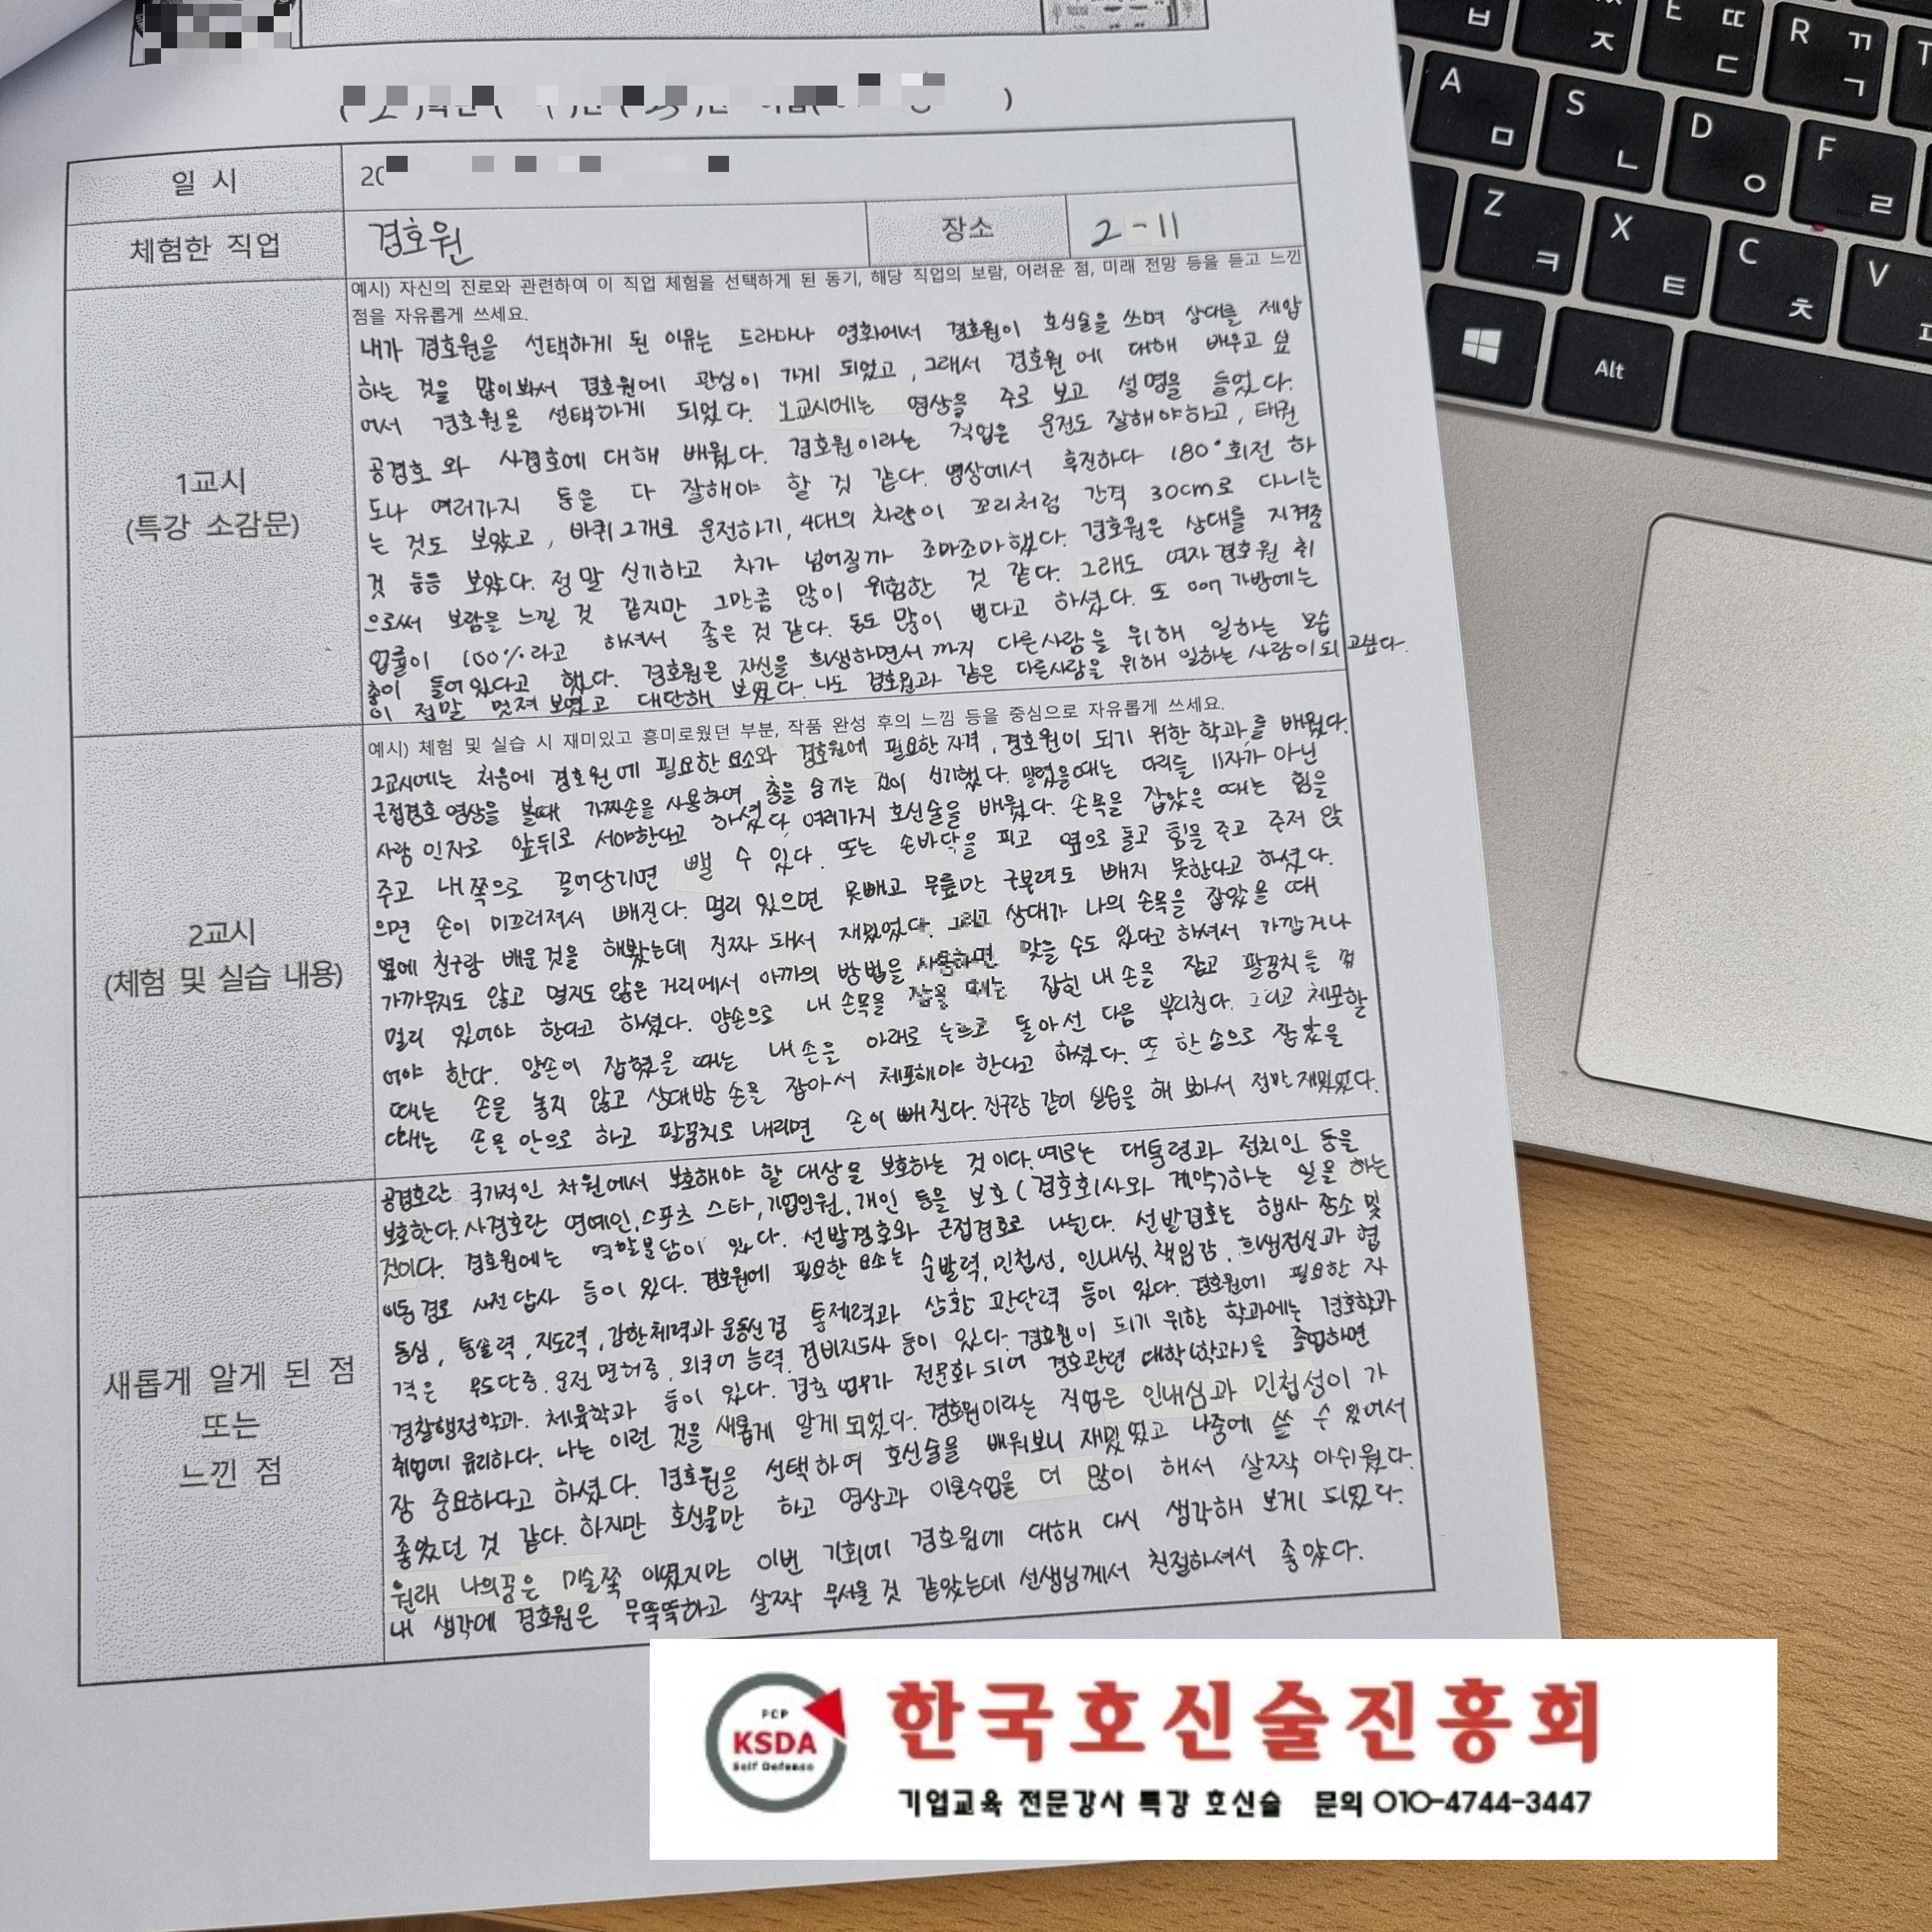 일 시
20
체험한 직업
경호원
장소
2-11
1교시
(특강 소감문)
예시) 자신의 진로와 관련하여 이 직업 체험을 선택하게 된 동기, 해당 직업의 보람, 어려운 점, 미래 전망 등을 듣고 느낀
점을 자유롭게 쓰세요.
내가 경호원을 선택하게 된 이유는 드라마나 영화에서 경호원이 호신술을 쓰며 상대를 제압
하는 것을 많이봐서 경호원에 관심이 가게 되었고, 그래서 경호원에 대해 배우고 싶
어서 경호원을 선택하게 되었다. 1교시에는 영상을 주로 보고 설명을 들었다.
공경호와 사경호에 대해 배웠다. 경호원이라는 직업은 운전도 잘해야하고, 태권
도나 여러가지 등을 다 잘해야 할 것 같다. 영상에서 후진하다 180°회전 하
는 것도 보았고, 바퀴 2개로 운전하기, 4대의 차량이 꼬리처럼 간격 30cm로 다니는
것 등등 보았다. 정말 신기하고 차가 넘어질까 조마조마했다. 경호원은 상대를 지켜줌
으로써 보람을 느낄 것 같지만 그만큼 많이 위험한 것 같다. 그래도 여자경호원 취
업률이 100%라고 하셔서 좋은 것 같다. 돈도 많이 번다고 하셨다. 또 007 가방에는
총이 들어있다고 했다. 경호원은 자신을 희생하면서 까지 다른사람을 위해 일하는 모습
이 정말 멋져 보였고 대단해 보였다. 나도 경호원과 같은 다른사람을 위해 일하는 사람이되고싶다.
2교시
(체험 및 실습 내용)
예시) 체험 및 실습 시 재미있고 흥미로웠던 부분, 작품 완성 후의 느낌 등을 중심으로 자유롭게 쓰세요.
2교시에는 처음에 경호원에 필요한 요소와 경호원에 필요한 자격, 경호원이 되기 위한 학과를 배웠다.
근접경호 영상을 볼때 가짜손을 사용하여 총을 숨기는 것이 신기했다. 밀렸을때는 다리를 11자가 아닌
사람 인자로 앞뒤로 서야한다고 하셨다 여러가지 호신술을 배웠다. 손목을 잡았을 때는 힘을
주고 내쪽으로 끌어당기면 뺄 수 있다. 또는 손바닥을 피고 옆으로 돌고 힘을 주고 주저 앉
으면 손이 미끄러져서 빠진다. 멀리 있으면 못빼고 무릎만 구부려도 빼지 못한다고 하셨다.
옆에 친구랑 배운것을 해봤는데 진짜 돼서 재밌었다. 그리고 상대가 나의 손목을 잡았을 때
가까우지도 않고 멀지도 않은 거리에서 아까의 방법을 사용하면 맞을 수도 있다고 하셔서 가깝거나
멀리 있어야 한다고 하셨다. 양손으로 내 손목을 잡을 때는 잡힌 내 손을 잡고 팔꿈치를 꺾
어야 한다. 양손이 잡혔을 때는 내 손을 아래로 누르고 돌아선 다음 뿌리친다. 그리고 체포할
때는 손을 놓지 않고 상대방 손을 잡아서 체포해야 한다고 하셨다. 또 한 손으로 잡았을
때는 손을 안으로 하고 팔꿈치로 내리면 손이 빠진다. 친구랑 같이 실습을 해 봐서 정말 재밌었다.
새롭게 알게 된 점
또는
느낀 점
공경호란 국가적인 차원에서 보호해야 할 대상을 보호하는 것이다. 예로는 대통령과 정치인 등을
보호한다. 사경호란 연예인, 스포츠 스타, 기업인원, 개인 등을 보호(경호회사와 계약)하는 일을 하는
것이다. 경호원에는 역할분담이 있다. 선발경호와 근접경호로 나뉜다. 선발경호는 행사 장소 및
이동 경로 사전 답사 등이 있다. 경호원에 필요한 요소는 순발력, 민첩성, 인내심, 책임감, 희생정신과 협
동심, 통솔력, 지도력, 강한체력과 운동신경 통제력과 상황 판단력 등이 있다. 경호원에 필요한 자
격은 무도단증, 운전면허증, 외국어 능력, 경비지도사 등이 있다. 경호원이 되기 위한 학과에는 경호학과
경찰행정학과, 체육학과 등이 있다. 경호 업무가 전문화 되어 경호관련 대학(학과)을 졸업하면
취업에 유리하다. 나는 이런 것을 새롭게 알게 되었다. 경호원이라는 직업은 인내심과 민첩성이 가
장 중요하다고 하셨다. 경호원을 선택하여 호신술을 배워보니 재밌었고 나중에 쓸 수 있어서
좋았던 것 같다. 하지만 호신술만 하고 영상과 이론수업을 더 많이 해서 살짝 아쉬웠다.
원래 나의꿈은 미술쪽 이였지만 이번 기회에 경호원에 대해 다시 생각해 보게 되었다.
내 생각에 경호원은 무뚝뚝하고 살짝 무서울 것 같았는데 선생님께서 친절하셔서 좋았다.
PCP
KSDA
Self Defense
한국호신술진흥회
기업교육 전문강사 특강 호신술 문의 010-4744-3447
A ㅁ
S ㄴ
D ㅇ
F ㄹ
Z ㅋ
X ㅌ
C ㅊ
V
E ㄸ ㄷ
R ㄲ ㄱ
ㅂ
ㅈ
Alt